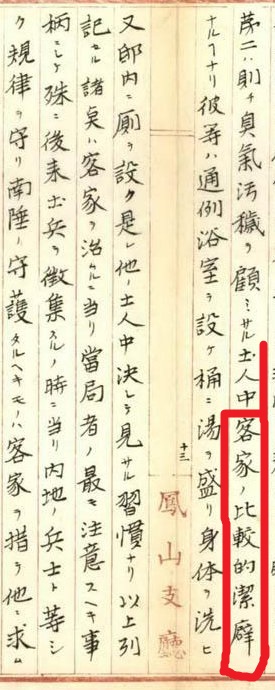 第二ハ則チ臭氣汚穢ヲ顧ミサル土人中客家ノ比較的潔癖
ナルヿナリ彼等ハ通例浴室ヲ設ケ桶ニ湯ヲ盛リ身体ヲ洗ヒ
十三
鳳山支廳
又邸内ニ廁ヲ設ク是レ他ノ土人中決シテ見サル習慣ナリ以上列
記セル諸点ハ客家ヲ治ムルニ当リ當局者ノ最モ注意スヘキ事
柄ニシテ殊ニ後来土兵ヲ徴集スルノ時ニ当リ内地ノ兵士ト等シ
ク規律ヲ守リ南陲ヲ守護タルヘキモノハ客家ヲ措テ他ニ求ム